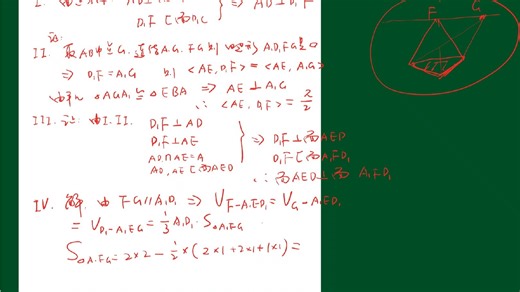 D₁F⊂面D₁C } ⇒ AD⊥D₁F
II. 取AB中点G, 连结A₁G, FG 则 四边形A₁D₁FG是▱
⇒ D₁F = A₁G 则 <AE, D₁F> = <AE, A₁G>
△AGA₁≅△EBA ⇒ AE⊥A₁G
∴ <AE, D₁F> = π/2
III. 证: 由I.II. D₁F⊥AD
D₁F⊥AE
AD∩AE=A
AD, AE⊂面AED } ⇒ D₁F⊥面AED
D₁F⊂面A₁FD₁
∴ 面AED⊥面A₁FD₁
IV. 解. 由FG∥A₁D₁ ⇒ V_{F-A₁ED₁} = V_{G-A₁ED₁}
= V_{D₁-A₁EG} = 1/3 A₁D₁·S_{△A₁EG}
S_{△A₁EG} = 2×2 - 1/2×(2×1+2×1+1×1) =
F G